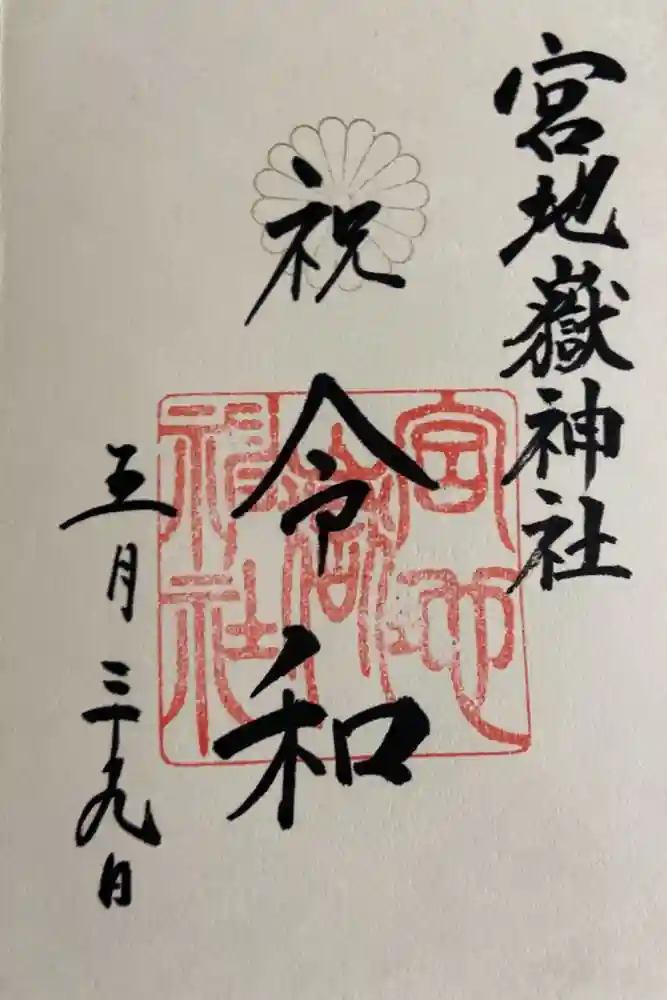 宮地嶽神社
祝令和
宮地
嶽
神社
五月二十九日